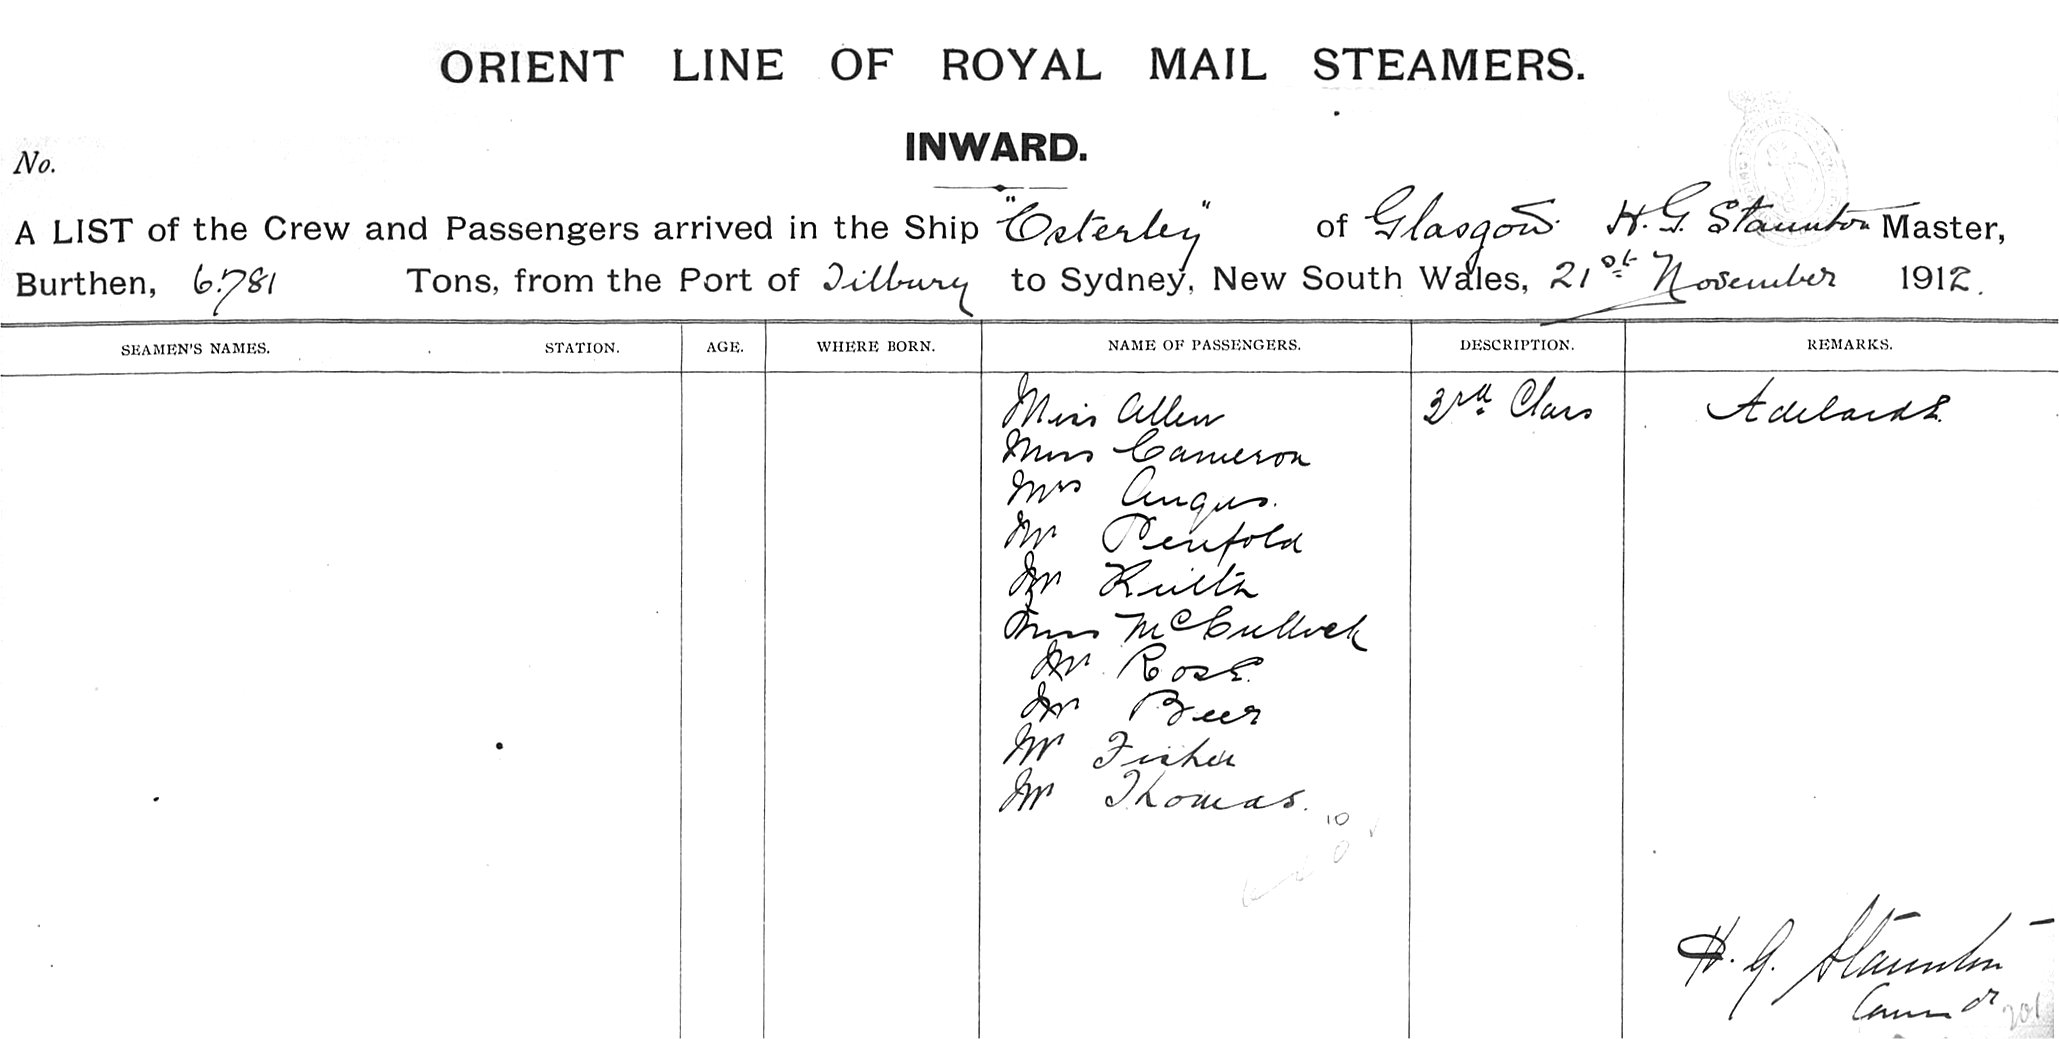 ORIENT LINE OF ROYAL MAIL STEAMERS.
INWARD.
No.
A LIST of the Crew and Passengers arrived in the Ship "Osterley" of Glasgow. H. G. Staunton Master,
Burthen, 6.781 Tons, from the Port of Tilbury to Sydney, New South Wales, 21st November 1912.
SEAMEN'S NAMES. STATION. AGE. WHERE BORN. NAME OF PASSENGERS. DESCRIPTION. REMARKS.
Miss Allen 3rd Class Adelaide
Miss Cameron
Mrs Angus.
Mr Penfold
Mr
Miss McCulloch
Mr Rose.
Mr Beer
Mr Fisher
Mr Thomas.
10
H. G. Staunton
Commdr
201